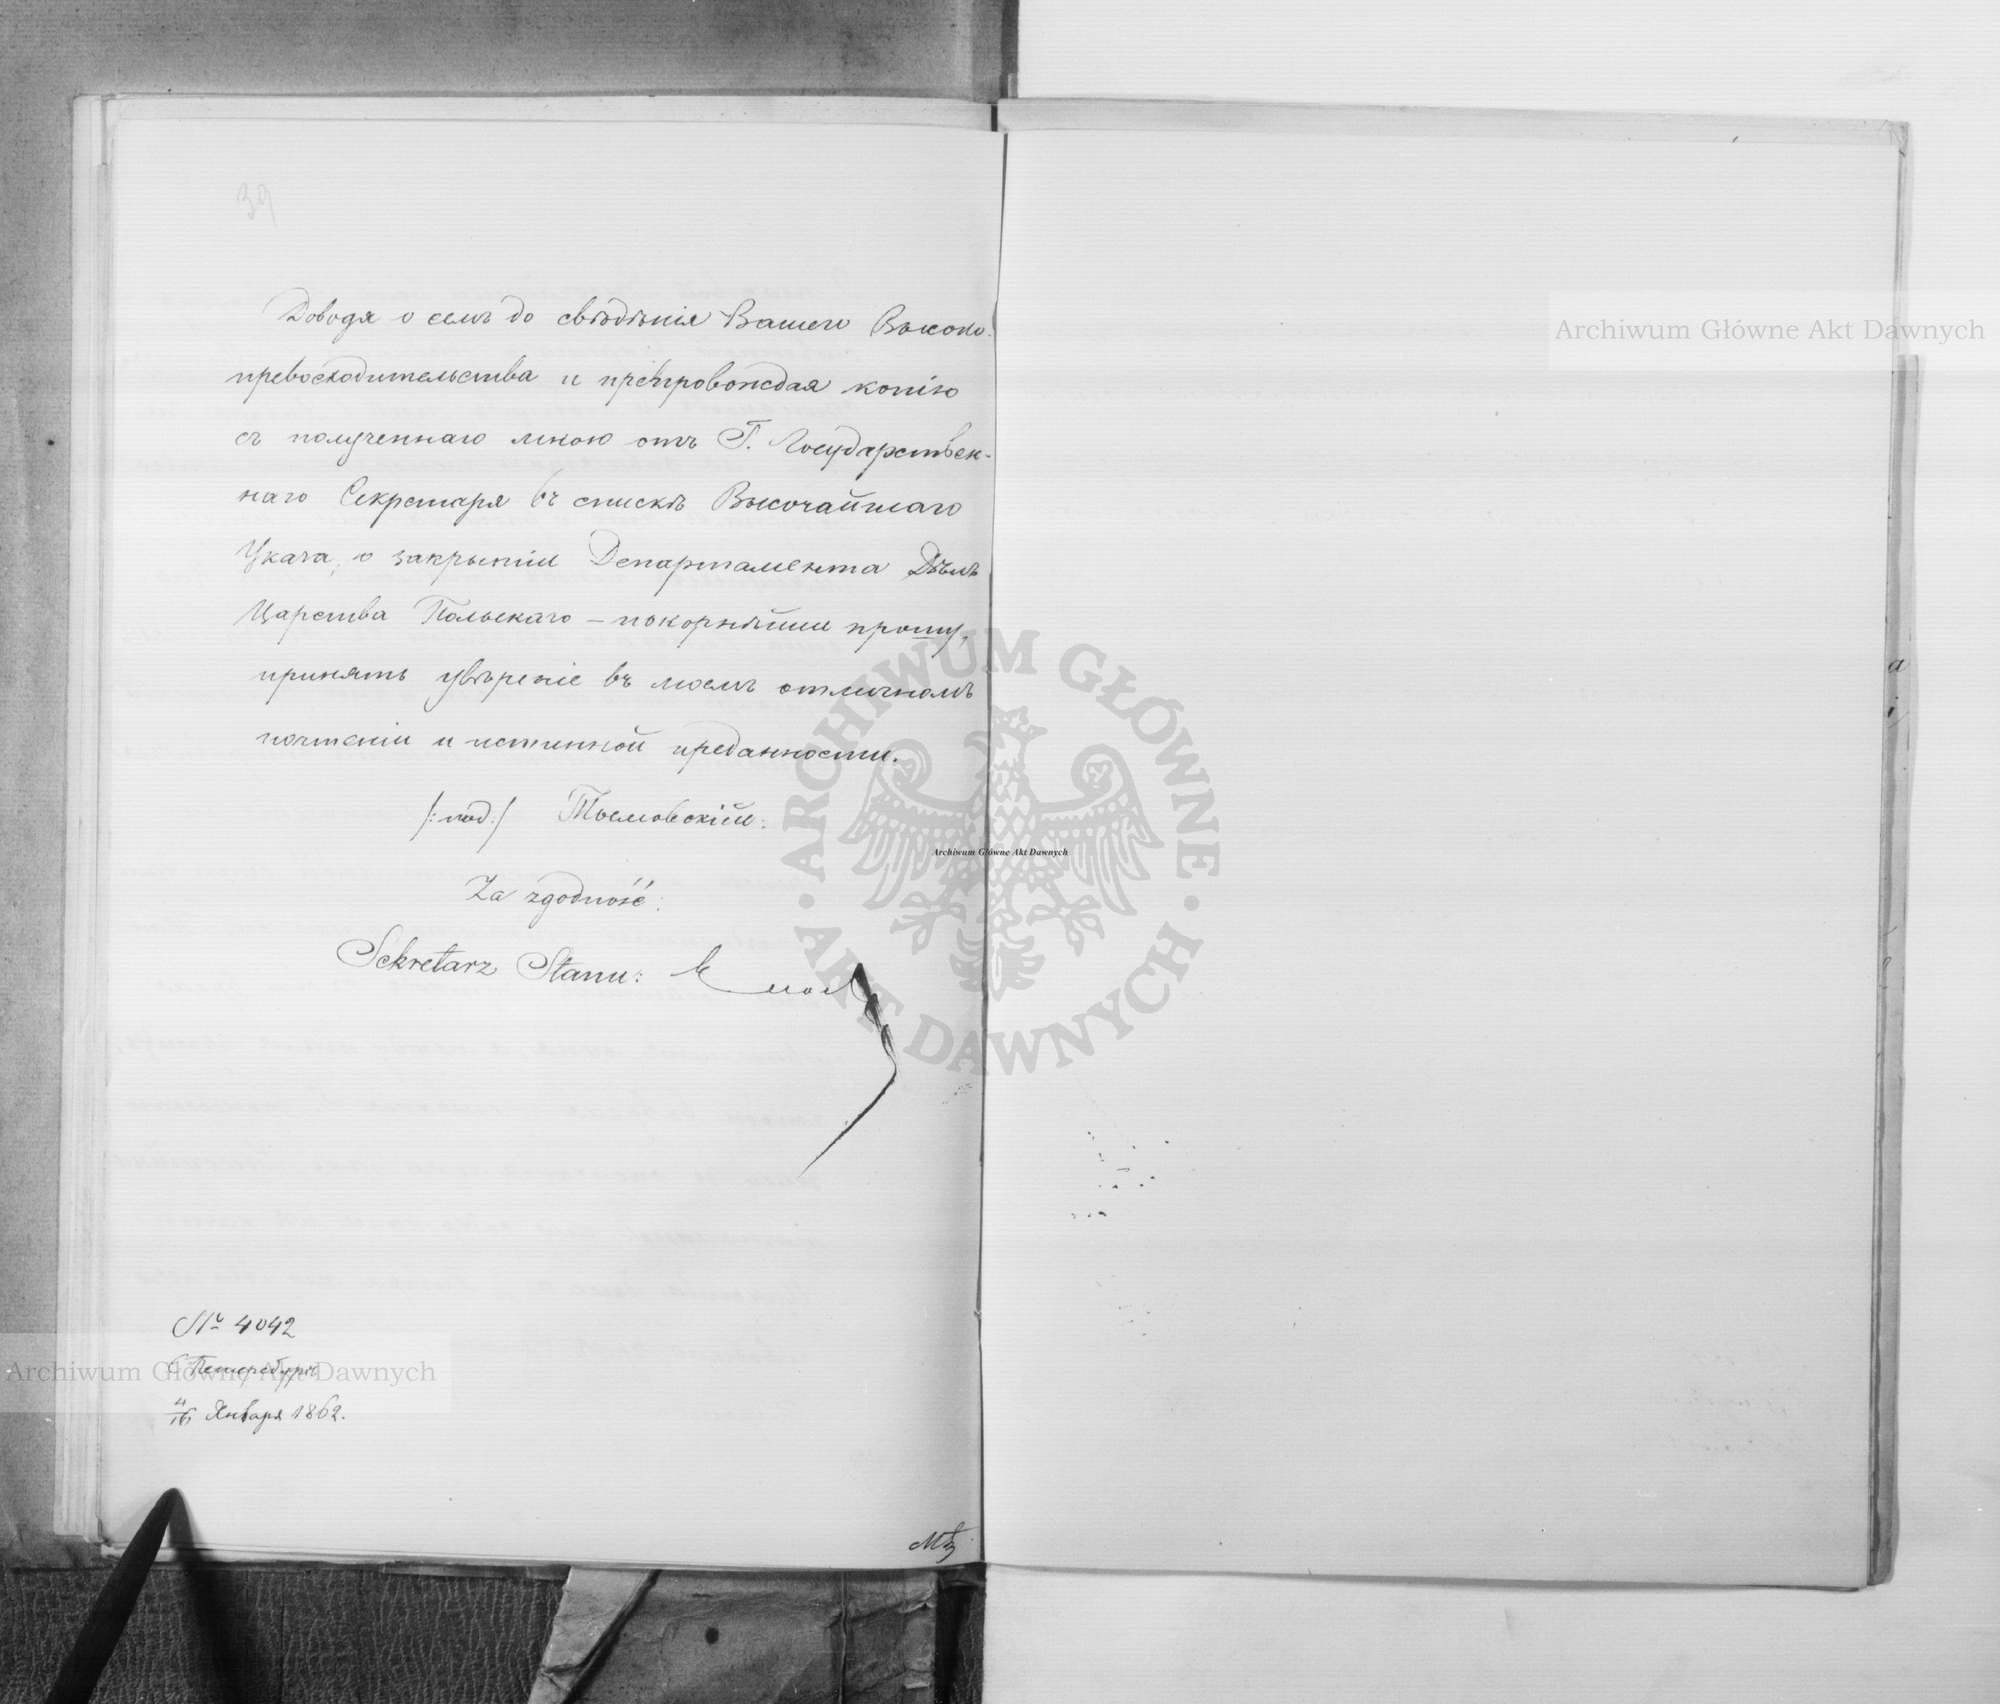 39
Доводя о семъ до свѣдѣнія Вашего Высоко-
превосходительства и препровождая копію
съ полученнаго мною отъ Г. Государствен-
наго Секретаря въ спискѣ Высочайшаго
Указа, о закрытіи Департамента Дѣлъ
Царства Польскаго – покорнѣйше прошу,
принять увѣреніе въ моемъ отличномъ
почтеніи и истинной преданности.
/:под:/ Тымовскій:
Za zgodność:
Sekretarz Stanu:
№ 4042
С Петербургъ
4/16 Января 1862.
Archiwum Główne Akt Dawnych
Archiwum Główne Akt Dawnych
Archiwum Główne Akt Dawnych
ARCHIWUM GŁÓWNE AKT DAWNYCH